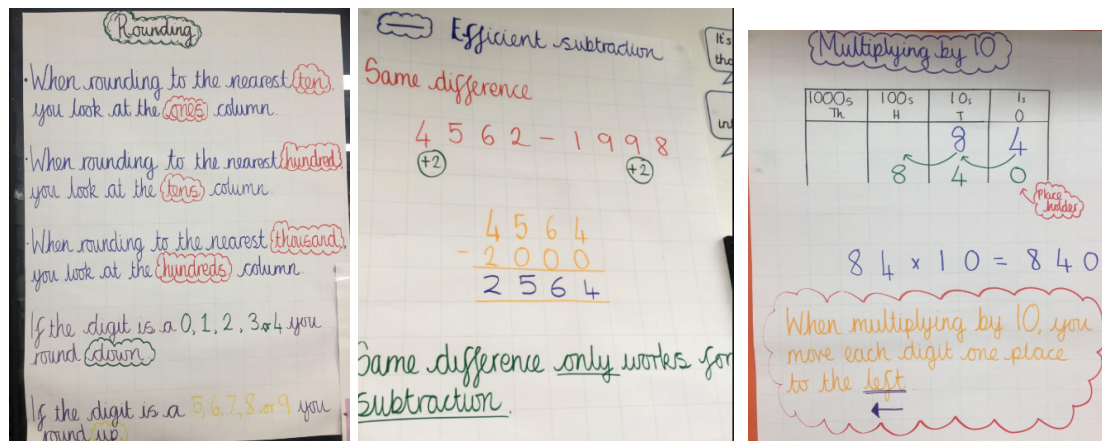 Rounding
· When rounding to the nearest ten,
you look at the ones column.
· When rounding to the nearest hundred
you look at the tens column.
· When rounding to the nearest thousand,
you look at the hundreds column.
If the digit is a 0, 1, 2, 3 or 4 you
round down.
If the digit is a 5, 6, 7, 8 or 9 you
round up.
Efficient subtraction
It's
Same difference
4 5 6 2 - 1 9 9 8
+2 +2
4 5 6 4
- 2 0 0 0
2 5 6 4
Same difference only works for
subtraction.
Multiplying by 10
1000s 100s 10s 1s
Th H T O
8 4
8 4 0
Place
holder
8 4 × 1 0 = 8 4 0
When multiplying by 10, you
move each digit one place
to the left.